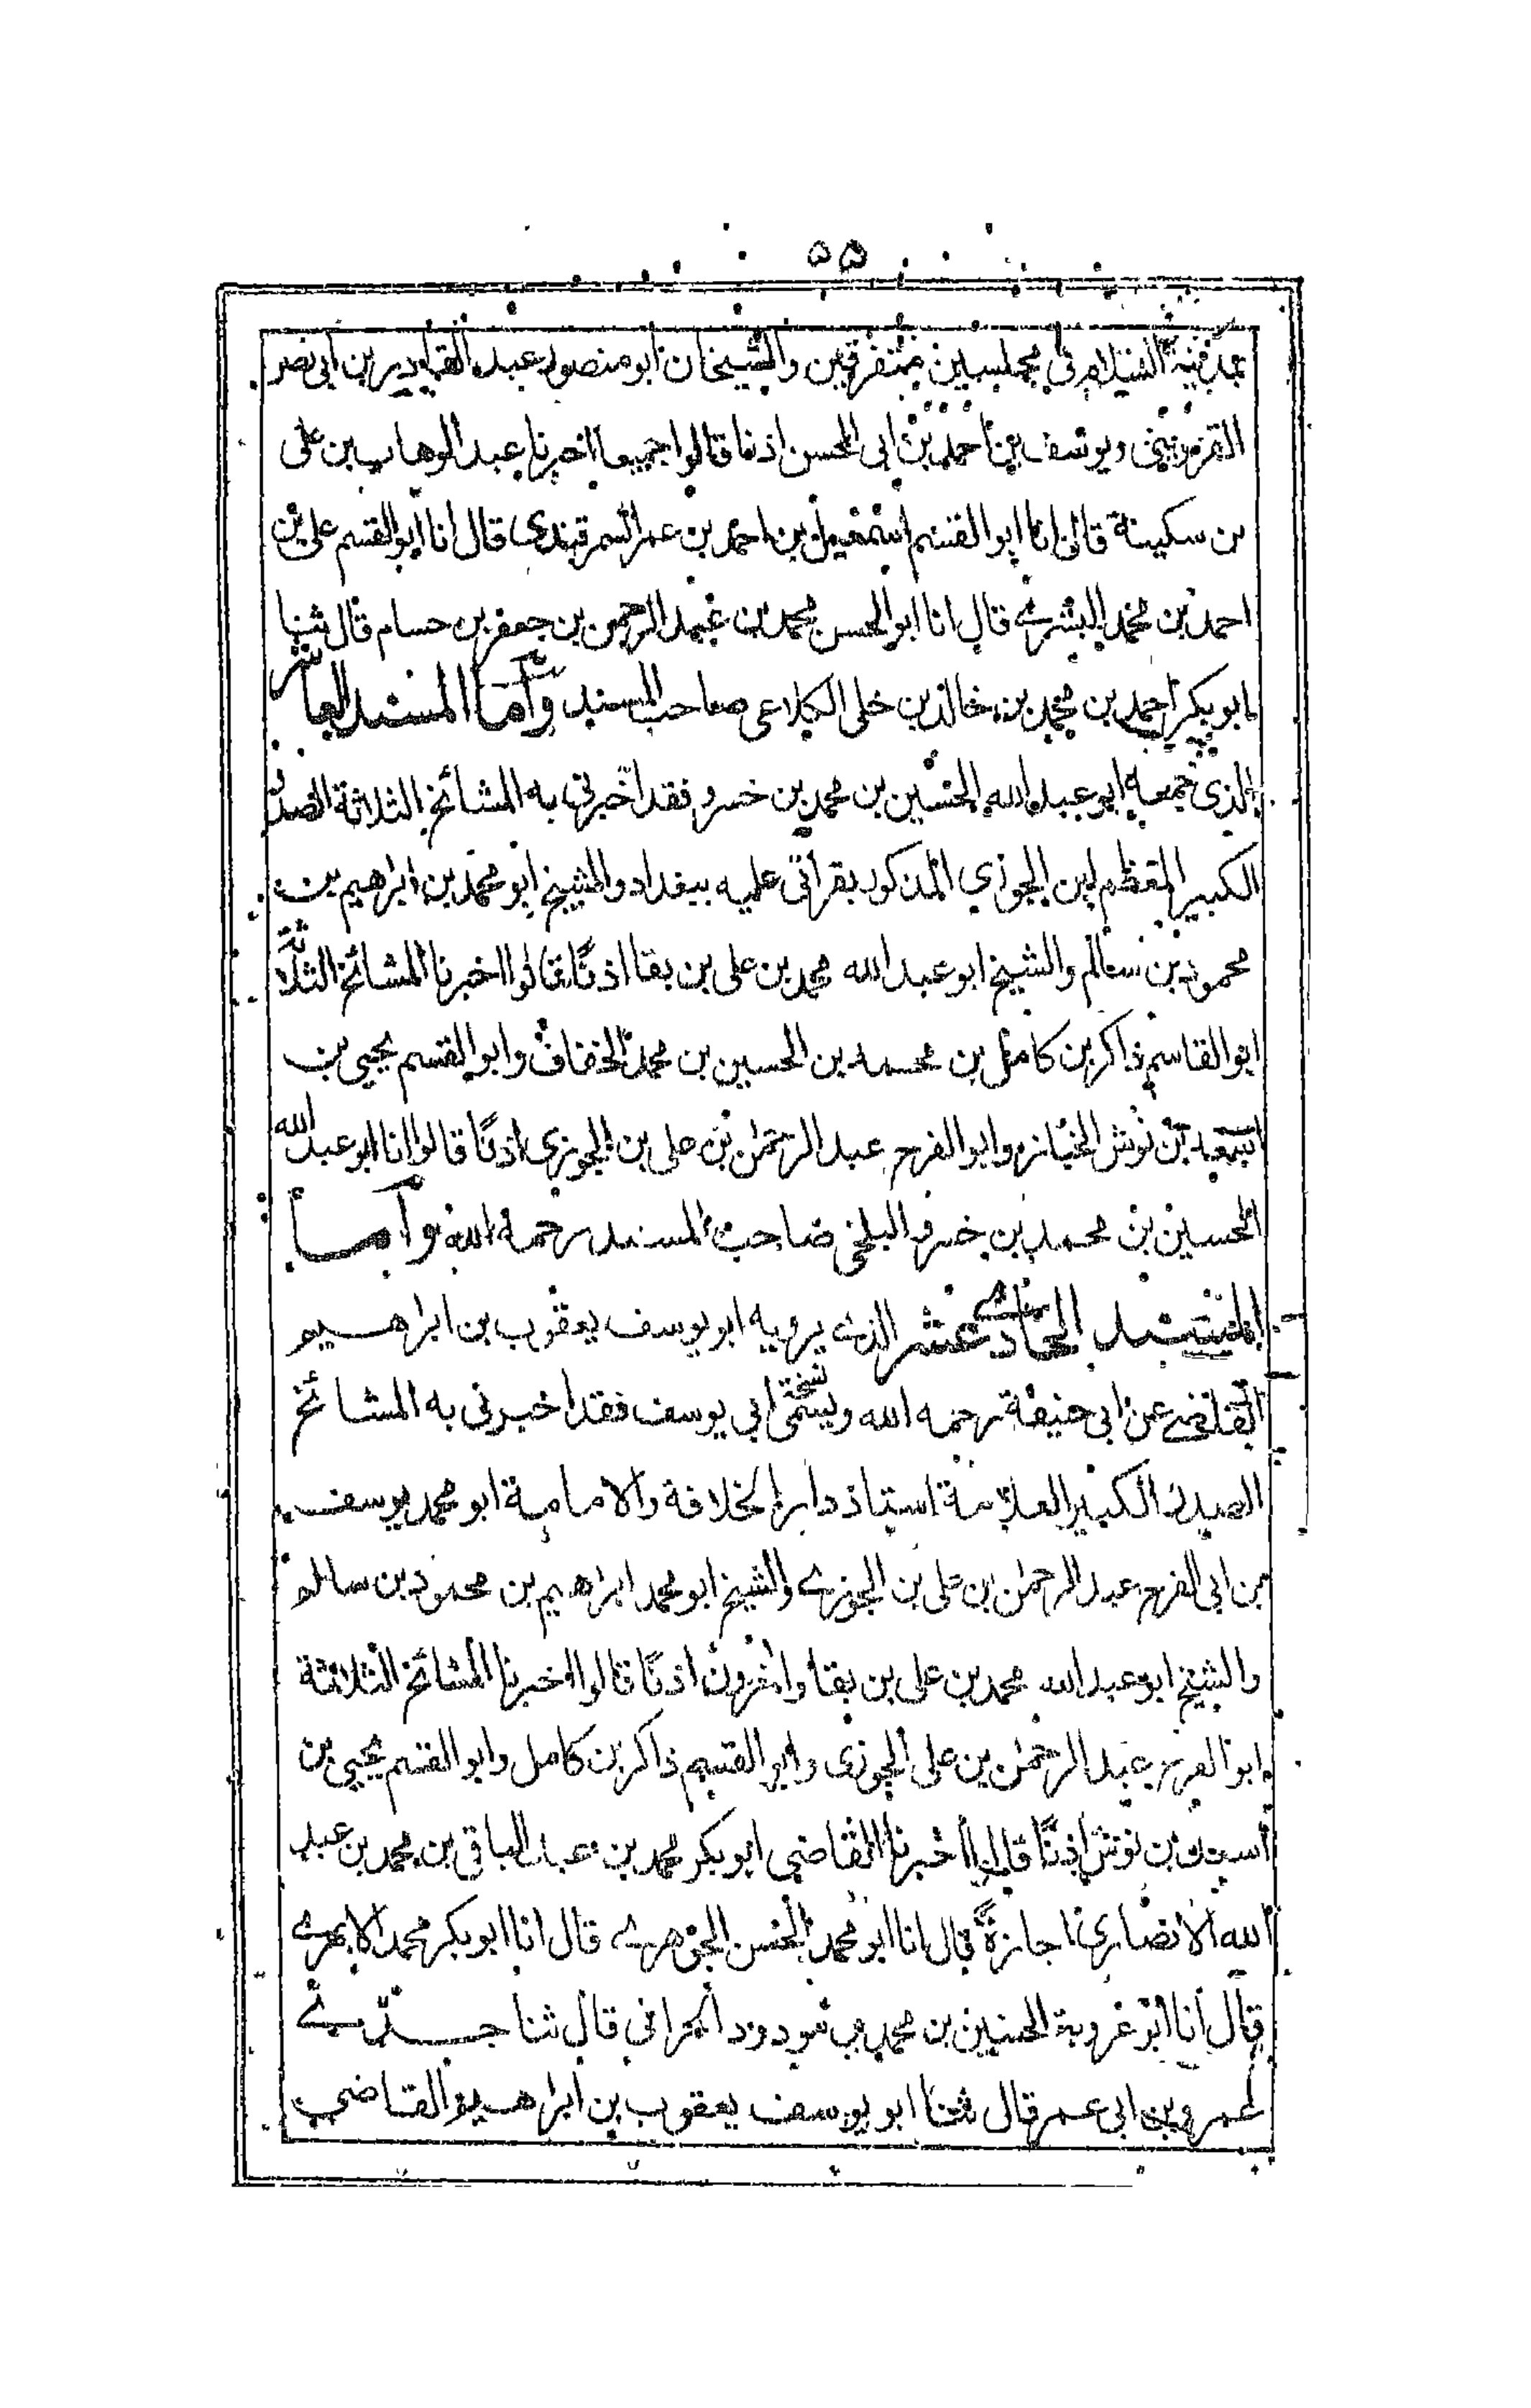 ۵۵
بمدينة السلام فى مجلسين متفرقين والشيخان ابو منصور عبد القادر بن ابى نصر
القزوينى ويوسف بن احمد بن ابى الحسن اذنا قالوا جميعا اخبرنا عبد الوهاب بن على
بن سكينة قال انا ابو القسم اسمعيل بن احمد بن عمر السمرقندى قال انا ابو القسم على بن
احمد بن محمد البشرى قال انا ابو الحسن محمد بن عبد الرحمن بن جعفر بن حسام قال ثنا
ابو بكر احمد بن محمد بن خالد بن خلى الكلاعى صاحب المسند واما المسند العاشر
الذى جمعه ابو عبد الله الحسين بن محمد بن خسرو فقد اخبرنى به المشائخ الثلاثة الصدر
الكبير المعظم ابن الجوزي المذكور بقرأتى عليه ببغداد والشيخ ابو محمد بن ابراهيم بن
محمود بن سالم والشيخ ابو عبد الله محمد بن على بن بقا اذنًا قالوا اخبرنا المشائخ الثلاثة
ابو القاسم ذاكر بن كامل بن محمد بن الحسين بن محمد الخفاف وابو القسم يحيى بن
اسعد بن نوش الخباز وابو الفرج عبد الرحمٰن بن على بن الجوزي اذنًا قالوا انا ابو عبد الله
الحسين بن محمد بن خسرو البلخى صاحب المسند رحمه الله واما
المسند الحادى عشر الذى يرويه ابو يوسف يعقوب بن ابراهيم
القاضى عن ابى حنيفة رحمه الله ويسمى نسخة ابى يوسف فقد اخبرنى به المشائخ
الصدر الكبير العلامة استاذ دار الخلافة والامامية ابو محمد يوسف
بن ابى الفرج عبد الرحمٰن بن على بن الجوزى والشيخ ابو محمد ابراهيم بن محمود بن سالم
والشيخ ابو عبد الله محمد بن على بن بقا واخرون اذنًا قالوا اخبرنا المشائخ الثلاثة
ابو الفرج عبد الرحمٰن بن على الجوزى وابو القسم ذاكر بن كامل وابو القسم يحيى بن
اسعد بن نوش اذنًا قالوا اخبرنا القاضى ابو بكر محمد بن عبد الباقى بن محمد بن عبد
الله الانصارى اجازةً قال انا ابو محمد الحسن الجوهرى قال انا ابو بكر محمد الابهرى
قال انا ابو عروبة الحسين بن محمد بن مودود الحرانى قال ثنا جدّى
عمرو بن ابى عمر قال ثنا ابو يوسف يعقوب بن ابراهيم القاضى